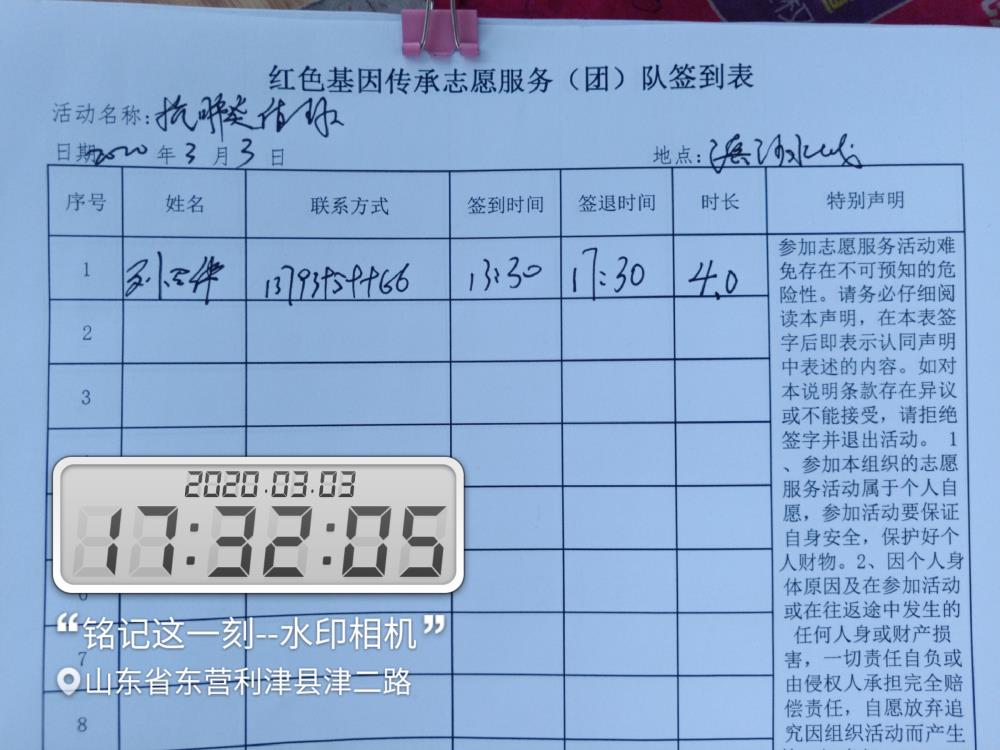 红色基因传承志愿服务（团）队签到表
活动名称：抗肺炎值班
日期 2020 年 3 月 3 日
地点：滨河水城
序号 姓名 联系方式 签到时间 签退时间 时长 特别声明
1 13793454466 13:30 17:30 4.0
2
3
6
7
8
参加志愿服务活动难
免存在不可预知的危
险性。请务必仔细阅
读本声明，在本表签
字后即表示认同声明
中表述的内容。如对
本说明条款存在异议
或不能接受，请拒绝
签字并退出活动。 1
、参加本组织的志愿
服务活动属于个人自
愿，参加活动要保证
自身安全，保护好个
人财物。2、因个人身
体原因及在参加活动
或在往返途中发生的
任何人身或财产损
害，一切责任自负或
由侵权人承担完全赔
偿责任，自愿放弃追
究因组织活动而产生
2020.03.03
17:32:05
“铭记这一刻--水印相机”
山东省东营利津县津二路